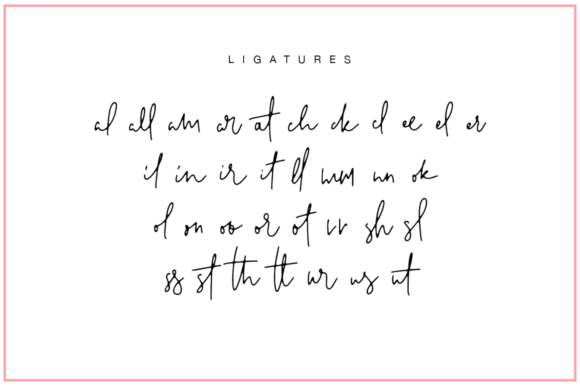 LIGATURES
al all am ar at ch ck cl ee el er
il in ir it ll mm nn ok
ol on oo or ot rr sh sl
ss st th tt ur us ut